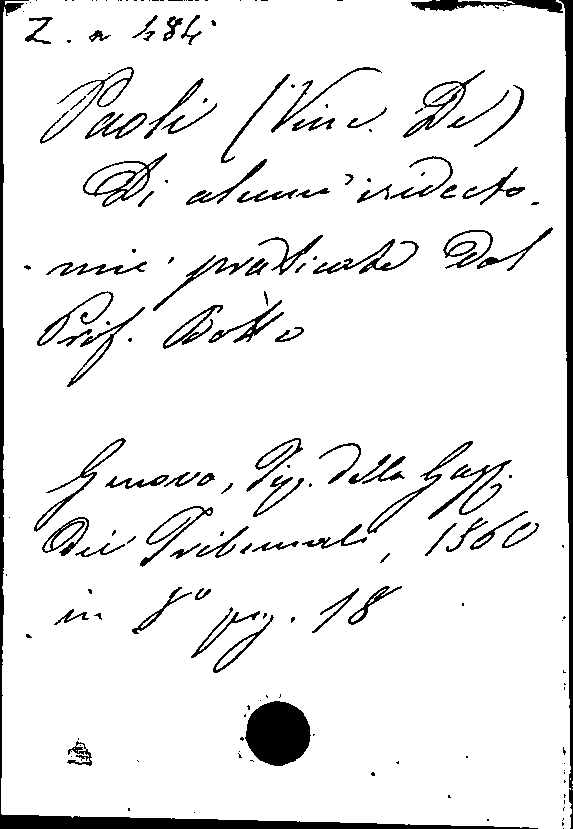 Z. n 484
Paoli (Vinc. De)
Di alcune iridecto-
mie praticate dal
Prof. Botto
Genova, Tip. della Gazz.
dei Tribunali, 1860
in 8° pag. 18